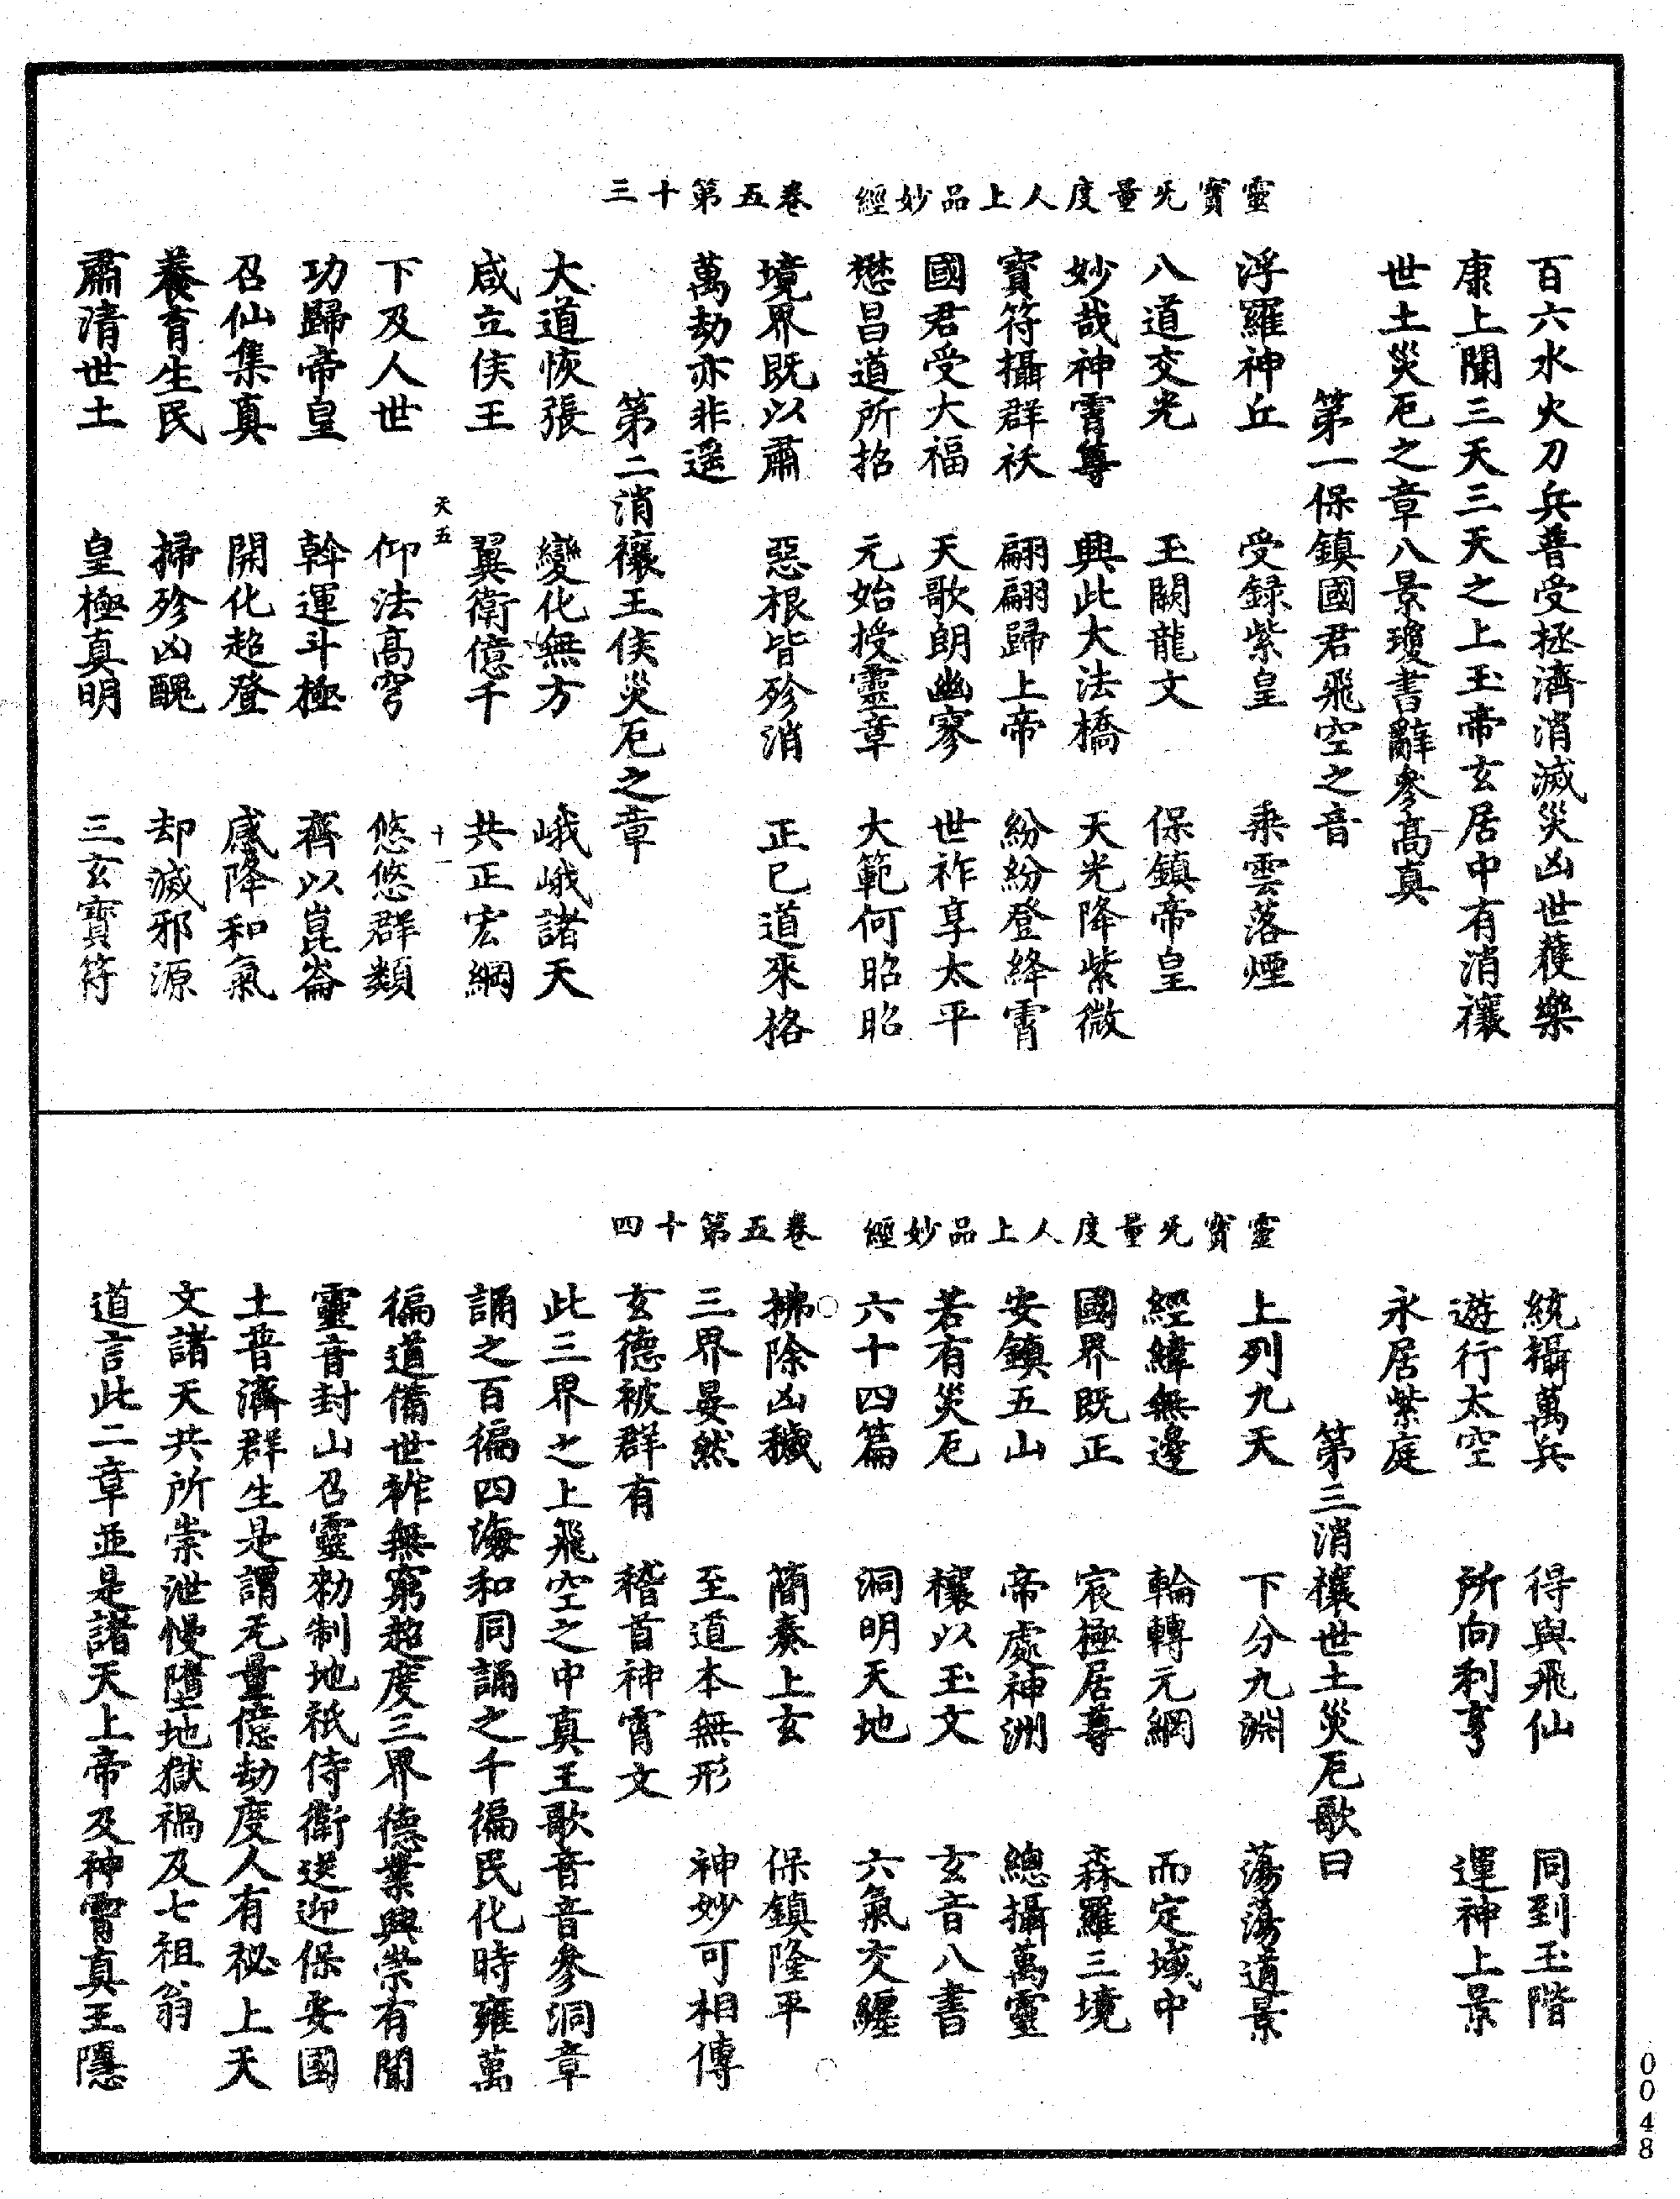 靈寶无量度人上品妙經　卷五第十三
百六水火刀兵普受拯濟消滅災凶世穫樂
康上聞三天三天之上玉帝玄居中有消禳
世土災厄之章八景瓊書辭參高真
第一保鎮國君飛空之音
浮羅神丘　受録紫皇　乘雲落煙
八道交光　玉闕龍文　保鎮帝皇
妙哉神霄尊　興此大法橋　天光降紫微
寶符攝群祅　翩翩歸上帝　紛紛登絳霄
國君受大福　天歌朗幽寥　世祚享太平
懋昌道所招　元始授靈章　大範何昭昭
境界既以肅　惡根皆殄消　正已道來格
萬劫亦非遥
第二消禳王侯災厄之章
大道恢張　變化無方　峨峨諸天
咸立侯王　翼衛億千　共正宏綱
天五　十一
下及人世　仰法高穹　悠悠群類
功歸帝皇　斡運斗極　齊以崑崙
召仙集真　開化超登　感降和氣
養育生民　掃殄凶醜　却滅邪源
肅清世土　皇極真明　三玄寶符
靈寶无量度人上品妙經　卷五第十四
統攝萬兵　得與飛仙　同到玉階
遊行太空　所向利亨　運神上景
永居紫庭
第三消禳世土災厄歌曰
上列九天　下分九淵　蕩蕩道景
經緯無邊　輪轉元綱　而定域中
國界既正　宸極居尊　森羅三境
安鎮五山　帝處神洲　總攝萬靈
若有災厄　禳以玉文　玄音八書
六十四篇　洞明天地　六氣交纏
拂除凶穢　簡奏上玄　保鎮隆平
三界晏然　至道本無形　神妙可相傳
玄德被群有　稽首神霄文
此三界之上飛空之中真王歌音音參洞章
誦之百徧四海和同誦之千徧民化時雍萬
徧道備世祚無窮超度三界德業興崇有聞
靈音封山召靈勑制地祇侍衛送迎保安國
土普濟群生是謂无量億劫度人有秘上天
文諸天共所崇泄慢墮地獄禍及七祖翁
道言此二章並是諸天上帝及神霄真王隱
0048